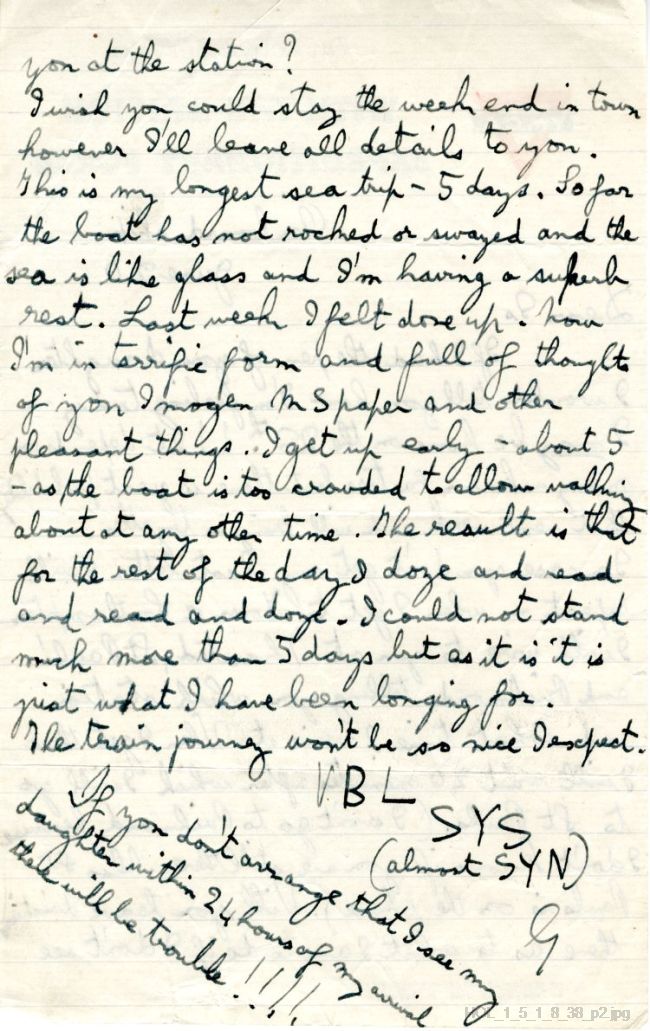 you at the station?
I wish you could stay the week end in town
however I'll leave all details to you.
This is my longest sea trip - 5 days. So far
the boat has not rocked or swayed and the
sea is like glass and I'm having a superb
rest. Last week I felt done up. Now
I'm in terrific form and full of thoughts
of you Imogen MS paper and other
pleasant things. I get up early - about 5
- as the boat is too crowded to allow walking
about at any other time. The result is that
for the rest of the day I doze and read
and read and doze. I could not stand
much more than 5 days but as it is it is
just what I have been longing for.
The train journey won't be so nice I expect.
VBL
SYS
(almost SYN)
G
If you don't arrange that I see my
daughter within 24 hours of my arrival
there will be trouble!!!!!
HOL_1_5_1_8_38_p2.jpg